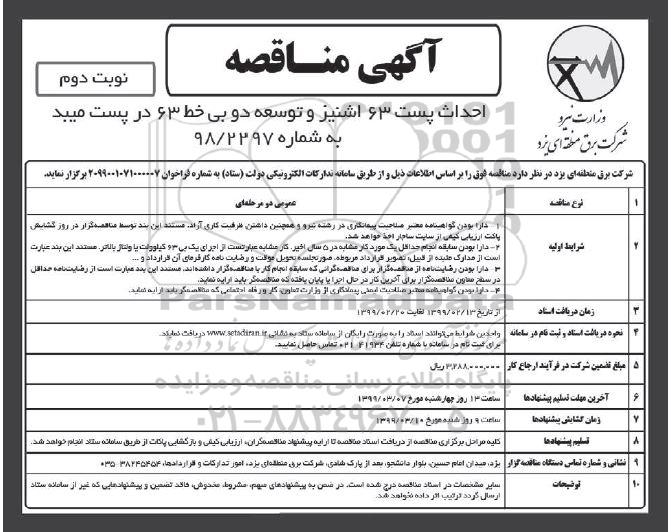 آگهی مناقصه
نوبت دوم
وزارت نیرو
شرکت برق منطقه‌ای یزد
احداث پست ۶۳ اشنیز و توسعه دو بی خط ۶۳ در پست میبد
به شماره ۹۸/۲۲۹۷
شرکت برق منطقه‌ای یزد در نظر دارد مناقصه فوق را بر اساس اطلاعات ذیل و از طریق سامانه تدارکات الکترونیکی دولت (ستاد) به شماره فراخوان ۲۰۹۹۰۰۱۰۷۱۰۰۰۰۰۷ برگزار نماید.
۱ نوع مناقصه عمومی دو مرحله‌ای
۲ شرایط اولیه
۱- دارا بودن گواهینامه معتبر صلاحیت پیمانکاری در رشته نیرو و همچنین داشتن ظرفیت کاری آزاد. مستند این بند توسط مناقصه‌گزار در روز گشایش
پاکت ارزیابی کیفی از سایت ساجار اخذ خواهد شد.
۲- دارا بودن سابقه انجام حداقل یک مورد کار مشابه در ۵ سال اخیر. کار مشابه عبارتست از اجرای یک بی ۶۳ کیلوولت یا ولتاژ بالاتر. مستند این بند عبارت
است از مدارک مثبته از قبیل: تصویر قرارداد مربوطه، صورتجلسه تحویل موقت و رضایت نامه کارفرمای آن قرارداد و ...
۳- دارا بودن رضایت‌نامه از مناقصه‌گزار برای مناقصه‌گرانی که سابقه انجام کار با مناقصه‌گزار داشته‌اند. مستند این بند عبارت است از رضایت‌نامه حداقل
در سطح معاون مناقصه‌گزار برای آخرین کار در حال اجرا یا پایان یافته که مناقصه‌گر باید ارایه نماید.
۴- دارا بودن گواهینامه معتبر صلاحیت ایمنی پیمانکاری از وزارت تعاون، کار و رفاه اجتماعی که مناقصه‌گر باید ارایه نماید.
۳ زمان دریافت اسناد از تاریخ ۱۳۹۹/۰۲/۱۳ لغایت ۱۳۹۹/۰۲/۲۰
۴ نحوه دریافت اسناد و ثبت نام در سامانه واجدین شرایط می‌توانند اسناد را به صورت رایگان از سامانه ستاد به نشانی www.setadiran.ir دریافت نمایند.
برای ثبت نام در سامانه با شماره تلفن ۴۱۹۳۴-۰۲۱ تماس حاصل نمایید.
۵ مبلغ تضمین شرکت در فرآیند ارجاع کار ۳,۲۸۸,۰۰۰,۰۰۰ ریال
۶ آخرین مهلت تسلیم پیشنهادها ساعت ۱۳ روز چهارشنبه مورخ ۱۳۹۹/۰۳/۰۷
۷ زمان گشایش پیشنهادها ساعت ۹ روز شنبه مورخ ۱۳۹۹/۰۳/۱۰
۸ تسلیم پیشنهادها کلیه مراحل برگزاری مناقصه از دریافت اسناد مناقصه تا ارایه پیشنهاد مناقصه‌گران، ارزیابی کیفی و بازگشایی پاکات از طریق سامانه ستاد انجام خواهد شد.
۹ نشانی و شماره تماس دستگاه مناقصه‌گزار یزد، میدان امام حسین، بلوار دانشجو، بعد از پارک شادی، شرکت برق منطقه‌ای یزد، امور تدارکات و قراردادها، ۳۸۲۴۵۴۵۴-۰۳۵
۱۰ توضیحات سایر مشخصات در اسناد مناقصه درج شده است. در ضمن به پیشنهادهای مبهم، مشروط، مخدوش، فاقد تضمین و پیشنهادهایی که غیر از سامانه ستاد
ارسال گردد ترتیب اثر داده نخواهد شد.
پایگاه اطلاع رسانی مناقصه و مزایده
۰۲۱-۸۸۳۴۹۶۷۰-۵